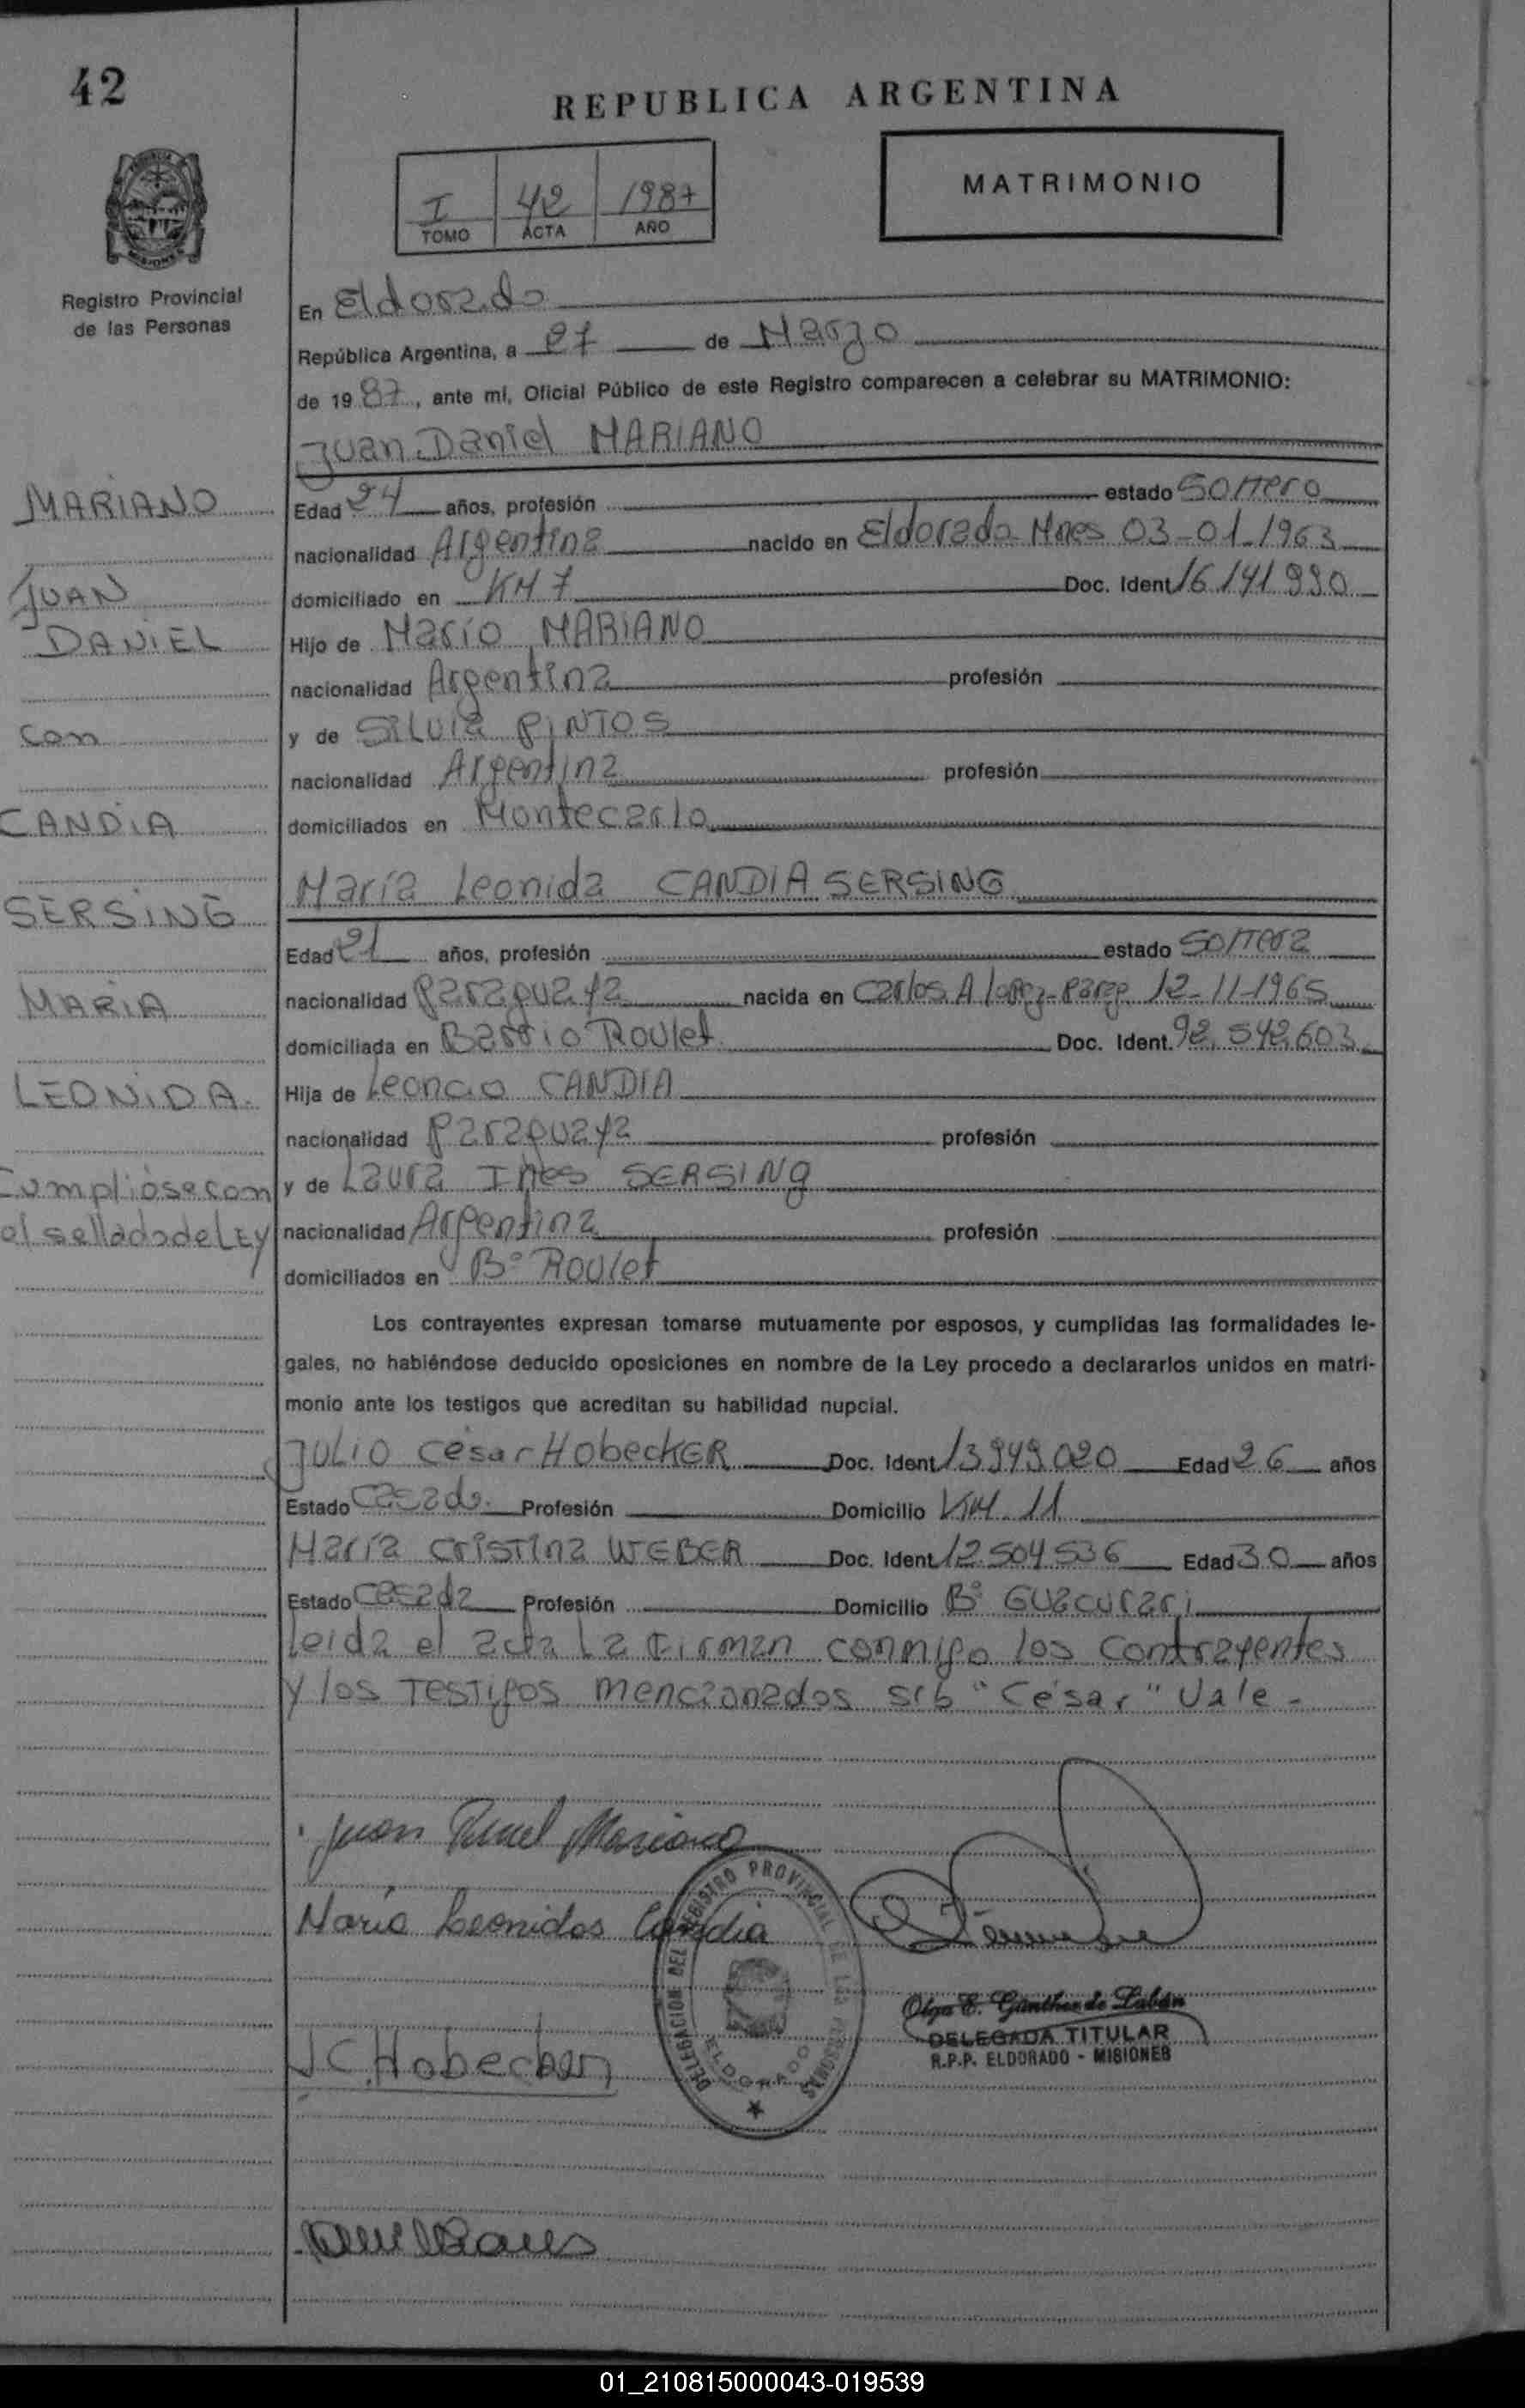 42
REPUBLICA ARGENTINA
I 42 1987
TOMO ACTA AÑO
MATRIMONIO
Registro Provincial
de las Personas
En Eldorado
República Argentina, a 27 de Marzo
de 1987, ante mi, Oficial Público de este Registro comparecen a celebrar su MATRIMONIO:
Juan Daniel MARIANO
MARIANO
Edad 24 años, profesión estado soltero
nacionalidad Argentina nacido en Eldorado Mnes 03-01-1963
JUAN
domiciliado en KM 7 Doc. Ident 16.141.990
DANIEL
Hijo de Mario MARIANO
nacionalidad Argentina profesión
con
y de Silvia PINTOS
nacionalidad Argentina profesión
CANDIA
domiciliados en Montecarlo
María Leonida CANDIA SERSING
SERSING
Edad 21 años, profesión estado soltera
MARIA
nacionalidad Paraguaya nacida en Carlos A Lopez- 12-11-1965
domiciliada en Barrio Roulet Doc. Ident. 92.542.603
LEONIDA.
Hija de Leoncio CANDIA
nacionalidad Paraguaya profesión
Cumplióse con
y de Laura Ines SERSING
el sellado de LEY
nacionalidad Argentina profesión
domiciliados en B° Roulet
Los contrayentes expresan tomarse mutuamente por esposos, y cumplidas las formalidades le-
gales, no habiéndose deducido oposiciones en nombre de la Ley procedo a declararlos unidos en matri-
monio ante los testigos que acreditan su habilidad nupcial.
JULIO César HobecKER Doc. Ident 13.949.020 Edad 26 años
Estado Casado. Profesión Domicilio KM. 11
María Cristina WEBER Doc. Ident 12.504.536 Edad 30 años
Estado Casada Profesión Domicilio B° Guacurari
Leida el acta La firman conmigo los contrayentes
y los Testigos mencionados s/b "César" Vale-
Juan Daniel Mariano
María Leonidas Candia
DELEGACION DEL REGISTRO PROVINCIAL DE LAS PERSONAS
ELDORADO
Olga E. Günther de Labán
DELEGADA TITULAR
R.P.P. ELDORADO - MISIONES
J C Hobecker
01_210815000043-019539